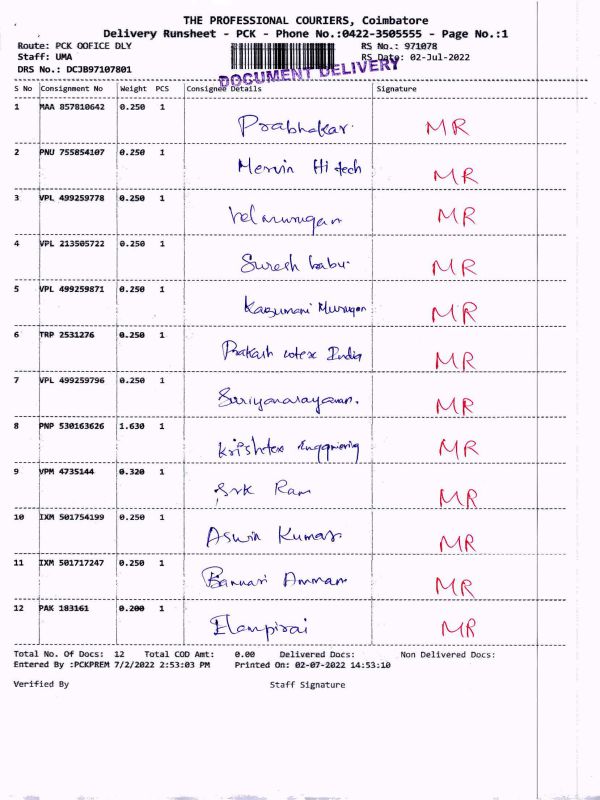 THE PROFESSIONAL COURIERS, Coimbatore
Delivery Runsheet - PCK - Phone No.:0422-3505555 - Page No.:1
Route: PCK OOFICE DLY RS No.: 971078
Staff: UMA RS Date: 02-Jul-2022
DRS No.: DCJB97107801 DOCUMENT DELIVERY
S No Consignment No Weight PCS Consignee Details Signature
1 MAA 857810642 0.250 1 Prabhakar. MR
2 PNU 755854107 0.250 1 Mervin Hi tech MR
3 VPL 499259778 0.250 1 Velmurugan MR
4 VPL 213505722 0.250 1 Suresh babu. MR
5 VPL 499259871 0.250 1 Murugan MR
6 TRP 2531276 0.250 1 Prakash cotex India MR
7 VPL 499259796 0.250 1 Suriyanarayanan. MR
8 PNP 530163626 1.630 1 Krishtex MR
9 VPM 4735144 0.320 1 Srk Ram MR
10 IXM 501754199 0.250 1 Aswin Kumar MR
11 IXM 501717247 0.250 1 Bannari Amman MR
12 PAK 183161 0.200 1 Elampirai MR
Total No. Of Docs: 12 Total COD Amt: 0.00 Delivered Docs: Non Delivered Docs:
Entered By :PCKPREM 7/2/2022 2:53:03 PM Printed On: 02-07-2022 14:53:10
Verified By Staff Signature